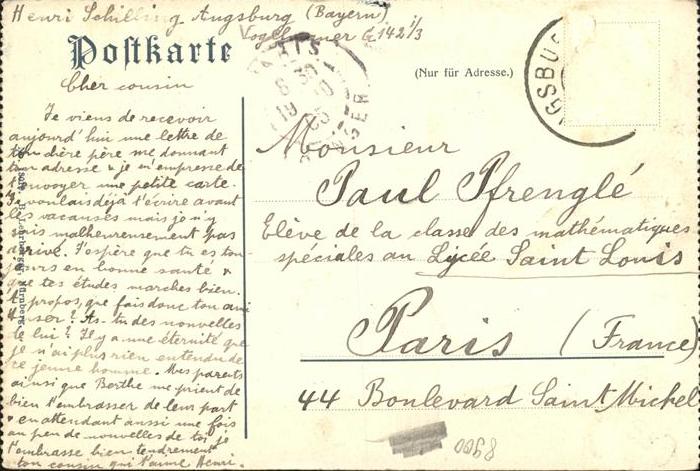 Henri Schilling, Augsburg (Bayern)
Postkarte
(Nur für Adresse.)
Cher cousin
Je viens de recevoir
aujourd'hui une lettre de
ton père me donnant
ton adresse & je m'empresse de
t'envoyer une petite carte.
Je voulais déjà t'écrire avant
les vacances mais je n'y
suis malheureusement pas
arrivé. J'espère que tu es tou-
jours en bonne santé &
que tes études marches bien.
A propos, que fais donc ton ami
? As-tu des nouvelles
de lui? Il y a une éternité que
je n'ai plus rien entendu de
ce jeune homme. Mes parents
ainsi que Berthe me prient de
bien t'embrasser de leur part
& en attendant aussi une fois
un peu de nouvelles de toi je
t'embrasse bien tendrement
ton cousin qui t'aime Henri.
Monsieur
Paul Pfrenglé
Elève de la classe des mathématiques
spéciales au Lycée Saint Louis
Paris (France)
44 Boulevard Saint Michel
PARIS
GSBU
Nürnberg